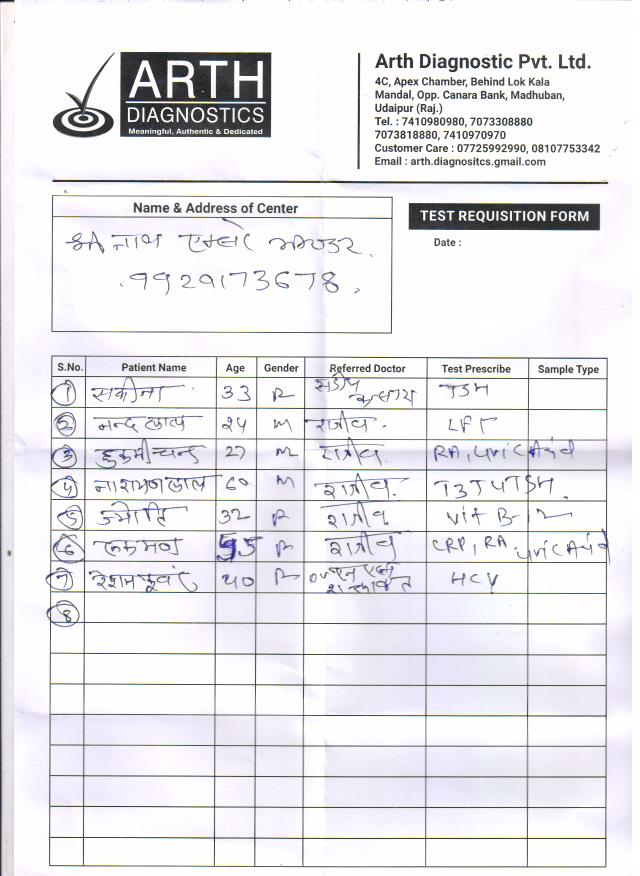 ARTH
DIAGNOSTICS
Meaningful, Authentic & Dedicated
Arth Diagnostic Pvt. Ltd.
4C, Apex Chamber, Behind Lok Kala
Mandal, Opp. Canara Bank, Madhuban,
Udaipur (Raj.)
Tel. : 7410980980, 7073308880
7073818880, 7410970970
Customer Care : 07725992990, 08107753342
Email : arth.diagnositcs.gmail.com
Name & Address of Center
TEST REQUISITION FORM
Date :
नाथ
9929173678
S.No. Patient Name Age Gender Referred Doctor Test Prescribe Sample Type
1 सकीना 33 TSH
2 नन्दलाल 24 M राजीव LFT
3 हुकमीचन्द 27 M राजीव RA, Uric Acid
4 नारायणलाल 60 M राजीव T3T4TSH
5 ज्योति 32 राजीव Vit B-12
6 लक्ष्मण 55 राजीव CRP, RA Uric Acid
7 रेशम कुवंर 40 HCV
8